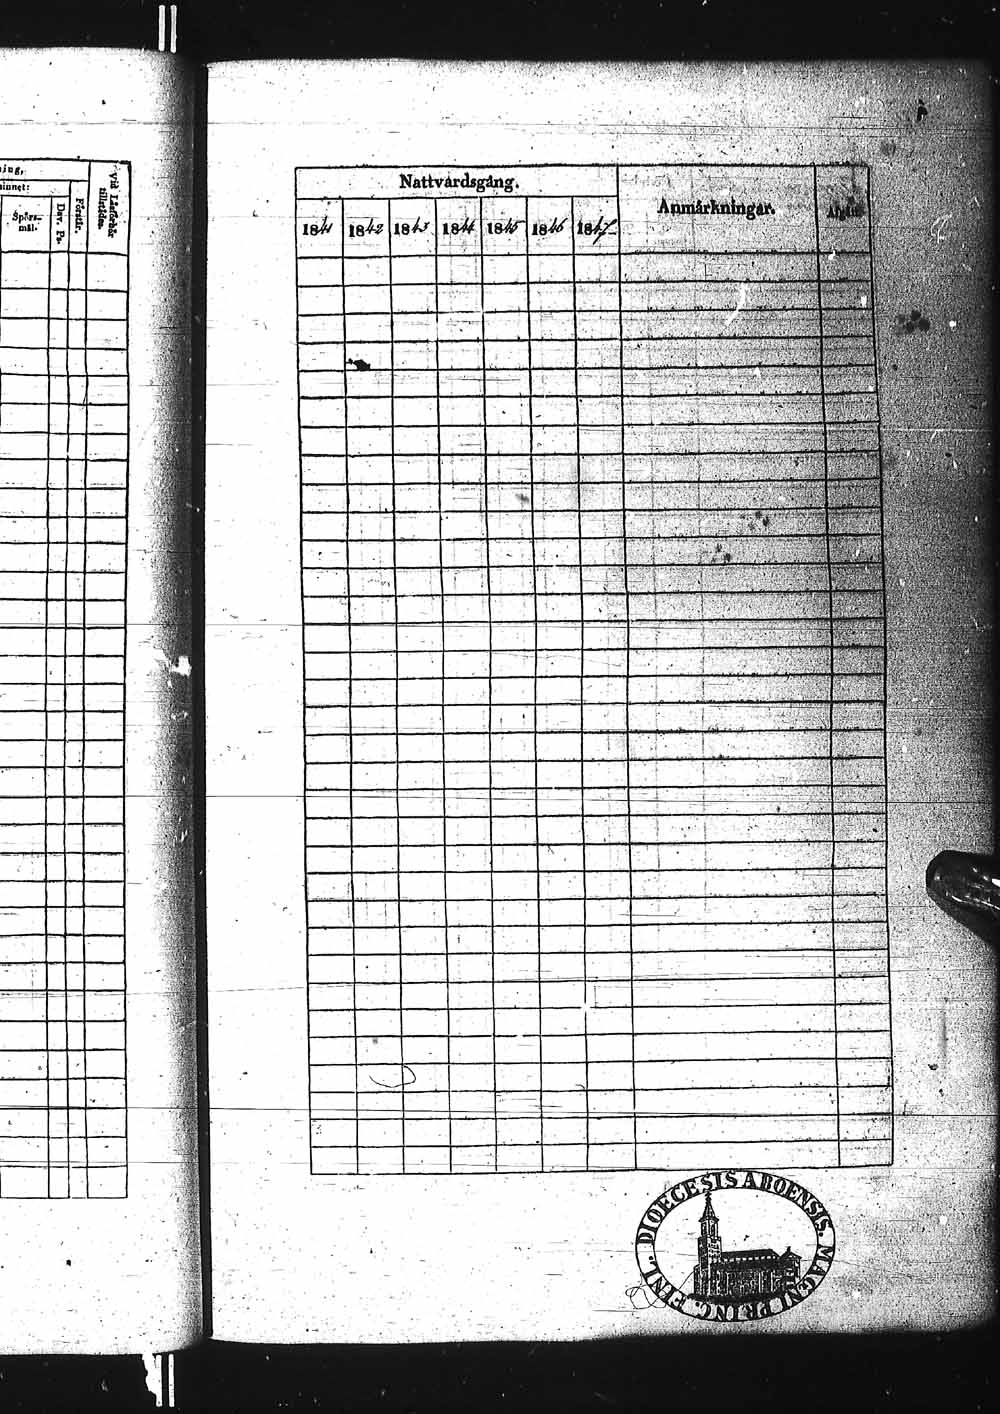 ning,
innet:
Spörs-
mål.
Dav. Ps.
Förstår.
Vid Läsförhör
tillstädes.
Nattvardsgång.
Anmärkningar.
1841 1842 1843 1844 1845 1846 1847
DIOECESIS ABOENSIS. MAGNI PRINC. FINL.